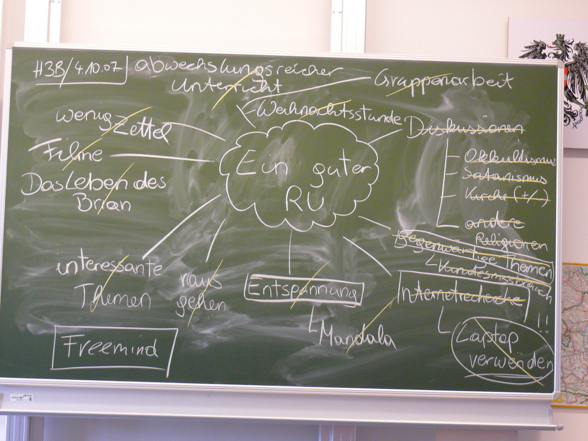 H3B/4.10.07
abwechslungsreicher
Unterricht
Gruppenarbeit
Weihnachtsstunde
wenig Zettel
Filme
Das Leben des
Brian
Ein guter
RU
Diskussionen
Okkultismus
Satanismus
Kirche (+/-)
andere
Religionen
Gegenwärtige Themen
interessante
Themen
raus
gehen
Entspannung
Mandala
Internetrecherche
!!
Laptop
verwenden
Freemind